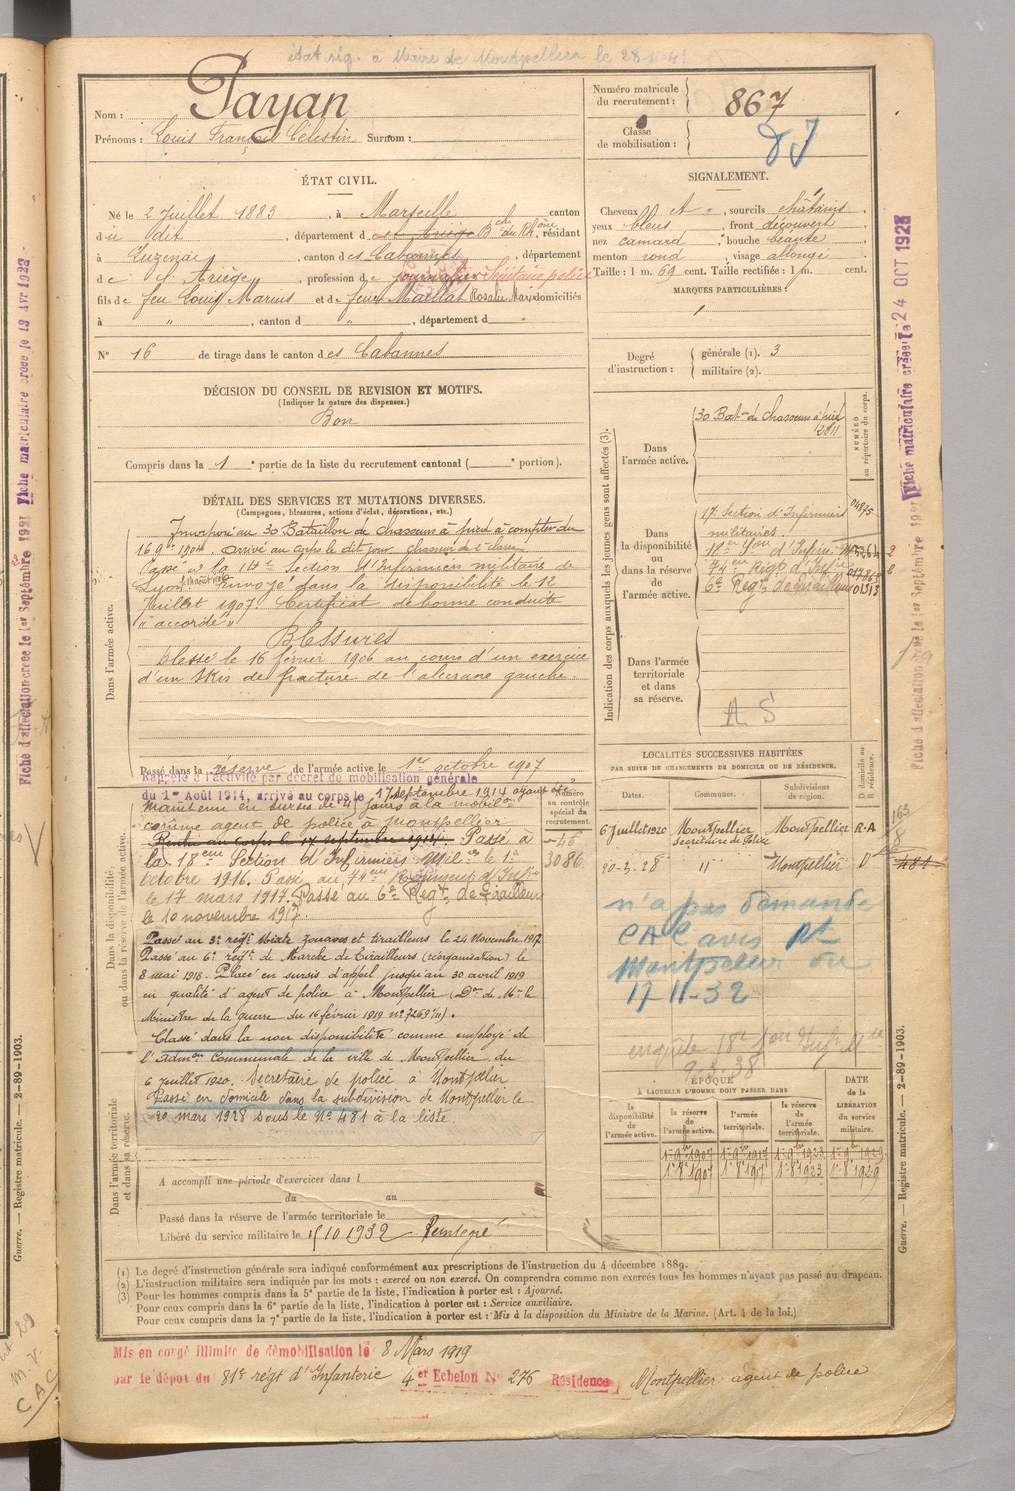 état sig. à Maire de Montpellier le 28-11-41
Nom : Payan
Prénoms : Louis François Célestin Surnom :
Numéro matricule du recrutement : 867
Classe de mobilisation :
ÉTAT CIVIL.
Né le 2 Juillet 1883, à Marseille, canton
du dit, département des Bches du Rhône, résidant
à Luzenac, canton des Cabannes, département
de l'Ariège, profession de journalier Secrétaire police
fils de feu Louis Marius et de feue Maillat Rosalie Marie domiciliés
à ", canton d ", département d "
N° 16 de tirage dans le canton des Cabannes
DÉCISION DU CONSEIL DE REVISION ET MOTIFS.
(Indiquer la nature des dispenses.)
Bon
Compris dans la 1e partie de la liste du recrutement cantonal ( e portion).
DÉTAIL DES SERVICES ET MUTATIONS DIVERSES.
(Campagnes, blessures, actions d'éclat, décorations, etc.)
Dans l'armée active.
Incorporé au 30 Bataillon de chasseurs à pied à compter du
16 9bre 1904. Arrivé au corps le dit jour chasseur de 2e classe
Passé à la 14e Section d'Infirmiers militaire de
Lyon. Envoyé dans la disponibilité le 12
Juillet 1907. Certificat de bonne conduite
"accordé"
Blessures
Blessé le 16 février 1906 au cours d'un exercice
d'un skis de fracture de l'alécrane gauche.
Passé dans la réserve de l'armée active le 1er octobre 1907
Rappelé à l'activité par décret de mobilisation générale
du 1er Août 1914, arrivé au corps le 17 septembre 1914 ayant été
Maintenu en sursis de 45 jours à la mobilon
comme agent de police à Montpellier
Rentré au corps le 17 septembre 1914. Passé à
la 18eme Section d'Infirmiers Milres le 1er
octobre 1916. Passé au 74eme Régiment d'Infie
le 17 mars 1917. Passé au 6e Regt de Tirailleurs
le 10 novembre 1917.
Passé au 3e régt Mixte zouaves et tirailleurs le 24 Novembre 1917
Passé au 6e régt de Marche de Tirailleurs (réorganisation) le
8 mai 1918. Placé en sursis d'appel jusqu'au 30 avril 1919
en qualité d'agent de police à Montpellier (Don de Mr le
Ministre de la guerre du 16 février 1919 n° 3269/11).
Classé dans la non disponibilité comme employé de
l'admon Communale de la ville de Montpellier du
6 Juillet 1920. Secrétaire de police à Montpellier
Passé en domicile dans la subdivision de Montpellier le
20 mars 1928 sous le N° 481 à la liste
Dans la disponibilité ou dans la réserve de l'armée active.
Dans l'armée territoriale et dans sa réserve.
Numéro au contrôle spécial du recrutement.
46
3086
A accompli une période d'exercices dans l
du au
Passé dans la réserve de l'armée territoriale le
Libéré du service militaire le 15 10 1932
SIGNALEMENT.
Cheveux et, sourcils châtains,
yeux bleus, front découvert,
nez camard, bouche béante,
menton rond, visage allongé.
Taille : 1 m. 69 cent. Taille rectifiée : 1 m. cent.
MARQUES PARTICULIÈRES :
Degré d'instruction : générale (1). 3
militaire (2).
Indication des corps auxquels les jeunes gens sont affectés (3).
NUMÉRO au répertoire du corps.
Dans l'armée active.
30 Baton de chasseurs à pied
2811
Dans la disponibilité ou dans la réserve de l'armée active.
17e Section d'Infirmiers militaires 04875
18e Son d'Infirm.
74em Régt d'Infie
6e Regt de Tirailleurs 01313
Dans l'armée territoriale et dans sa réserve.
A S
LOCALITÉS SUCCESSIVES HABITÉES
PAR SUITE DE CHANGEMENTS DE DOMICILE OU DE RÉSIDENCE.
Dates. Communes. Subdivisions de région. D domicile ou R résidence.
6 Juillet 1920 Montpellier Montpellier R-A
Secrétaire de Police
20-3-28 " Montpellier D
163
481
n'a pas demandé
CAC avis Pt
Montpellier du
17-11-32
enquête 18e Son Infie Mre
9-3-38
ÉPOQUE
À LAQUELLE L'HOMME DOIT PASSER DANS
la disponibilité de l'armée active. la réserve de l'armée active. l'armée territoriale. la réserve de l'armée territoriale. DATE DE LA LIBÉRATION du service militaire.
1er 9bre 1907 1er 9bre 1917 1er 9bre 1923 1er 9bre 1929
1er 8bre 1907 1er 8bre 1917 1er 8bre 1923 1er 8bre 1929
(1) Le degré d'instruction générale sera indiqué conformément aux prescriptions de l'instruction du 4 décembre 1889.
(2) L'instruction militaire sera indiquée par les mots : exercé ou non exercé. On comprendra comme non exercés tous les hommes n'ayant pas passé au drapeau.
(3) Pour les hommes compris dans la 5e partie de la liste, l'indication à porter est : Ajourné.
Pour ceux compris dans la 6e partie de la liste, l'indication à porter est : Service auxiliaire.
Pour ceux compris dans la 7e partie de la liste, l'indication à porter est : Mis à la disposition du Ministre de la Marine. (Art. 4 de la loi.)
Mis en congé illimité de démobilisation le 8 Mars 1919
par le dépôt du 81e régt d'Infanterie 4er Echelon N° 276 Résidence Montpellier agent de police
Guerre. — Registre matricule. — 2-89-1903.
Fiche d'affectation créée le 1er Septembre 1921 Fiche matriculaire créée le 24 OCT 1928
Fiche d'affectation créée le 1er Septembre 1921 Fiche matriculaire créée le 19 Avr 1922
Guerre. — Registre matricule. — 2-89-1903.
M V
CAC